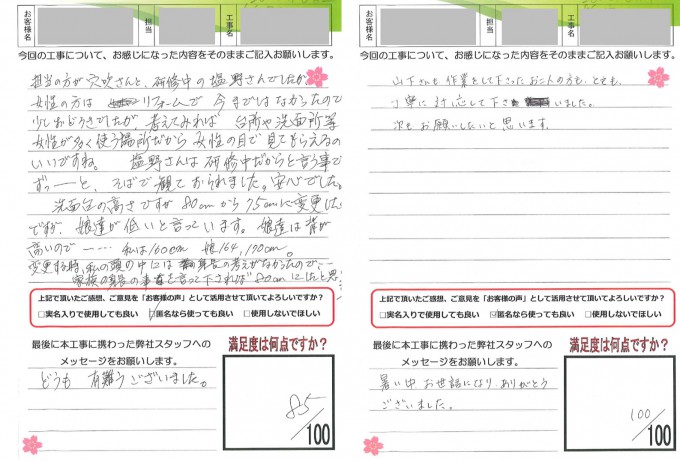 お客様名
担当
工事名
今回の工事について、お感じになった内容をそのままご記入お願いします。
担当の方が穴吹さんと、研修中の塩野さんでしたが
女性の方は リフォームで 今まではなかったので
少しおどろきでしたが、考えてみれば 台所や洗面所等
女性が多く使う場所だから 女性の目で見てもらえるの
いいですね。 塩野さんは研修中だからと言う事で
ずっーと、そばで観ておられました。安心でした。
洗面台の高さですが 80cmから75cmに変更した
ですが、娘達が低いと言っています。娘達は背が
高いので ―… 私は160cm 娘164,170cm。
変更する時、私の頭の中には 身長の考えがなかったので…
家族の身長の事を言って下されば 80cmにしたと思
上記で頂いたご感想、ご意見を「お客様の声」として活用させて頂いてよろしいですか?
□実名入りで使用しても良い ☑匿名なら使っても良い □使用しないでほしい
最後に本工事に携わった弊社スタッフへの
メッセージをお願いします。
どうも 有難うございました。
満足度は何点ですか?
85
/100
お客様名
担当
工事名
今回の工事について、お感じになった内容をそのままご記入お願いします。
山下さんも作業をして下さったお二人の方も、とても、
丁寧に対応して下さいました。
次もお願いしたいと思います。
上記で頂いたご感想、ご意見を「お客様の声」として活用させて頂いてよろしいですか?
□実名入りで使用しても良い ☑匿名なら使っても良い □使用しないでほしい
最後に本工事に携わった弊社スタッフへの
メッセージをお願いします。
暑い中 お世話になり、ありがとう
ございました。
満足度は何点ですか?
100
/100